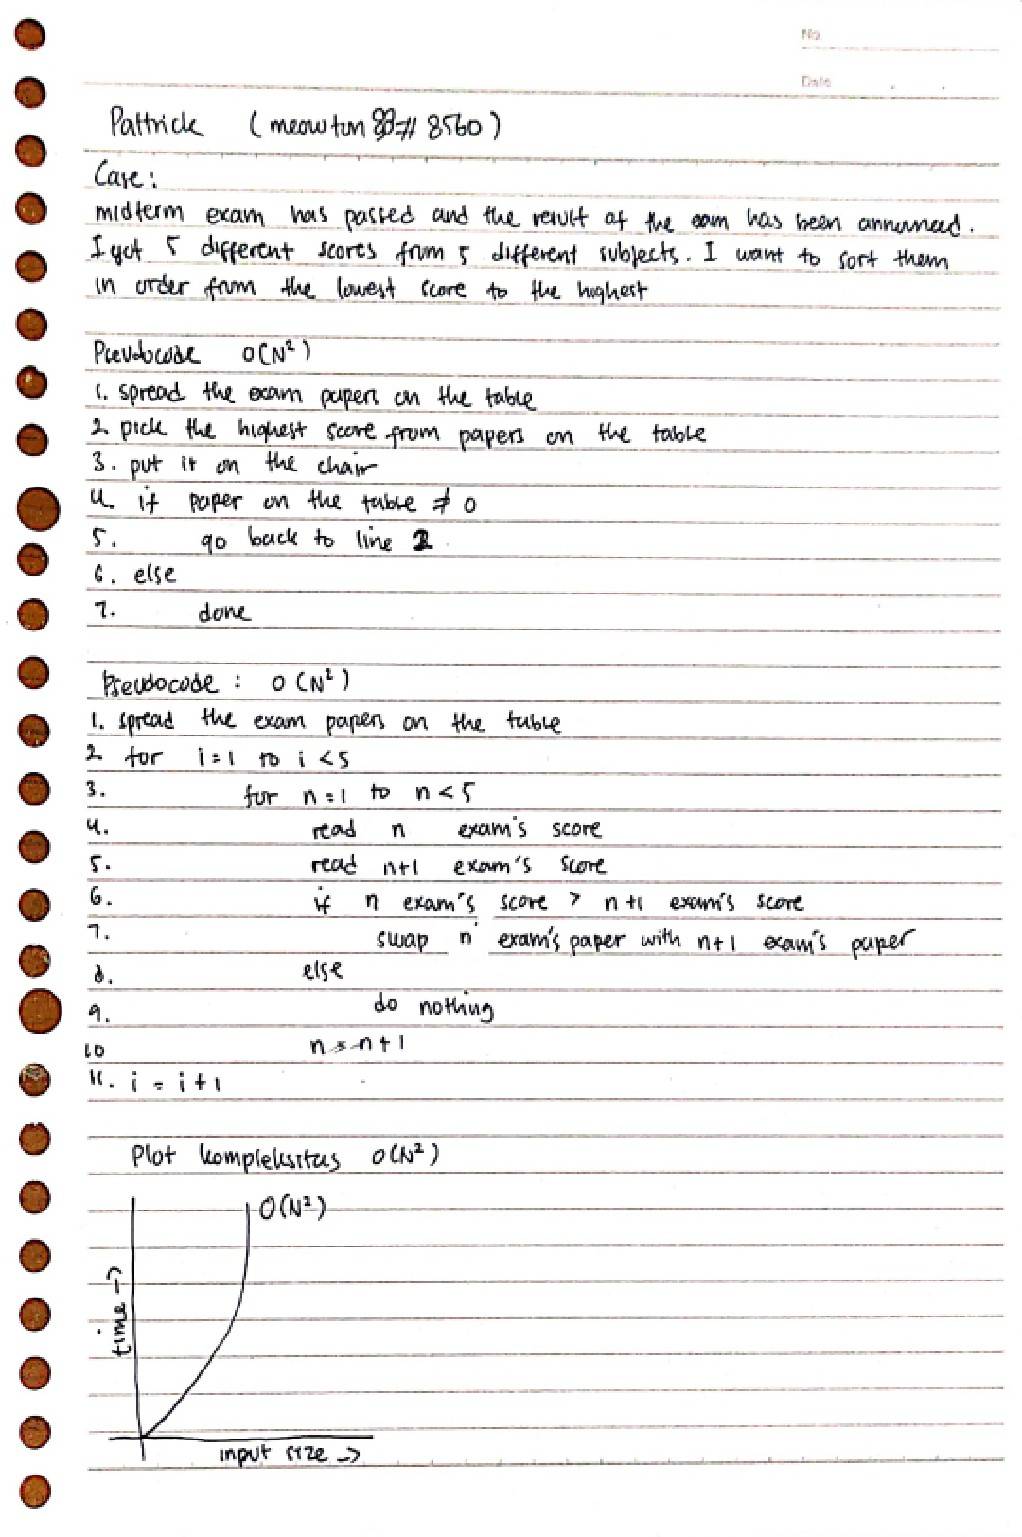 No
Date
Pattrick (meowtun # 8560)
Case:
midterm exam has passed and the result of the exam has been announced.
I got 5 different scores from 5 different subjects. I want to sort them
in order from the lowest score to the highest
Pseudocode O(N²)
1. spread the exam papers on the table
2. pick the highest score from papers on the table
3. put it on the chair
4. if paper on the table ≠ 0
5. go back to line 2
6. else
7. done
Pseudocode : O(N²)
1. spread the exam papers on the table
2. for i=1 to i <5
3. for n=1 to n<5
4. read n exam's score
5. read n+1 exam's score
6. if n exam's score > n+1 exam's score
7. swap n exam's paper with n+1 exam's paper
8. else
9. do nothing
10 n=n+1
11. i = i+1
Plot kompleksitas O(N²)
O(N²)
time →
input size →